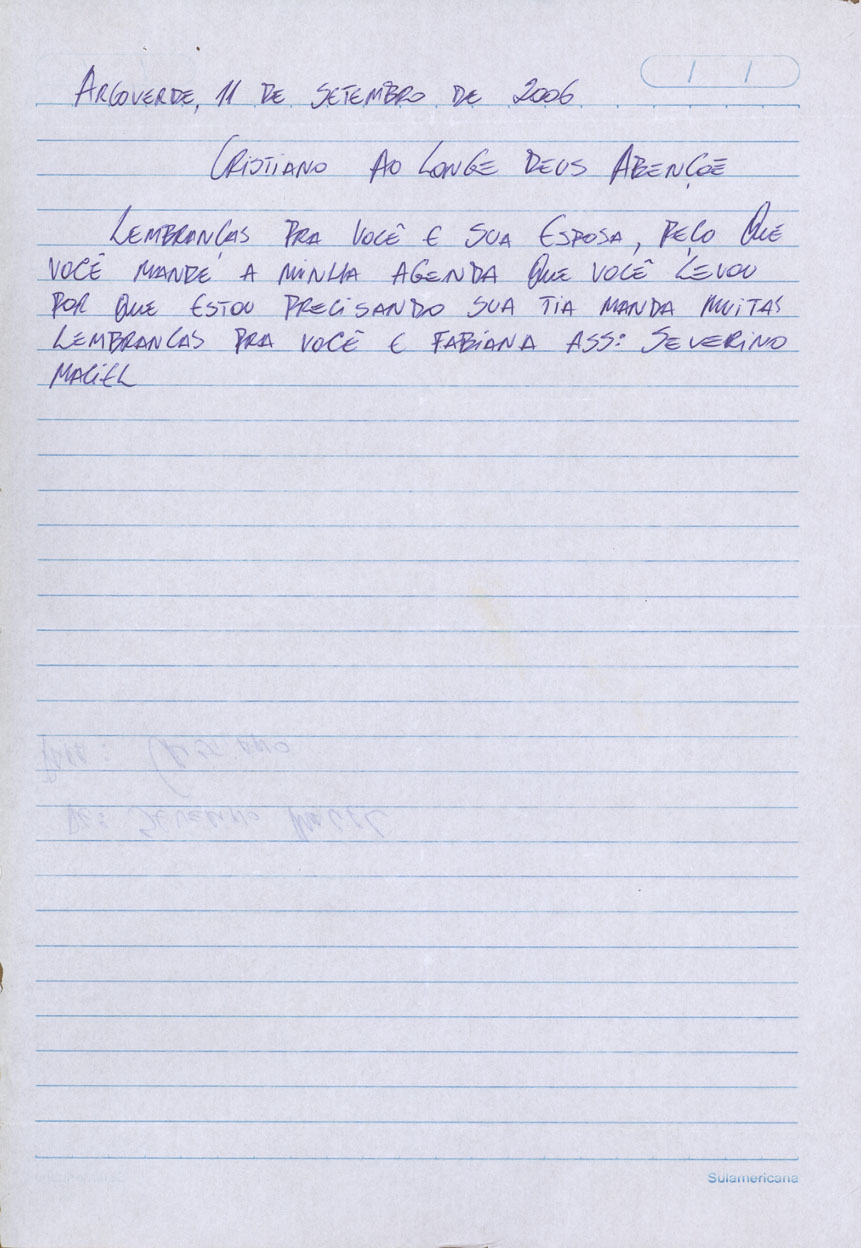 ARGOVERDE, 11 DE SETEMBRO DE 2006
CRISTIANO AO LONGE DEUS ABENÇOE
LEMBRANÇAS PRA VOCÊ E SUA ESPOSA, PEÇO QUE
VOCÊ MANDE A MINHA AGENDA QUE VOCÊ LEVOU
POR QUE ESTOU PRECISANDO SUA TIA MANDA MUITAS
LEMBRANCAS PRA VOCÊ E FABIANA ASS: SEVERINO
MACIEL
PARA: CRISTIANO
DE: SEVERINO MACIEL
Sulamericana